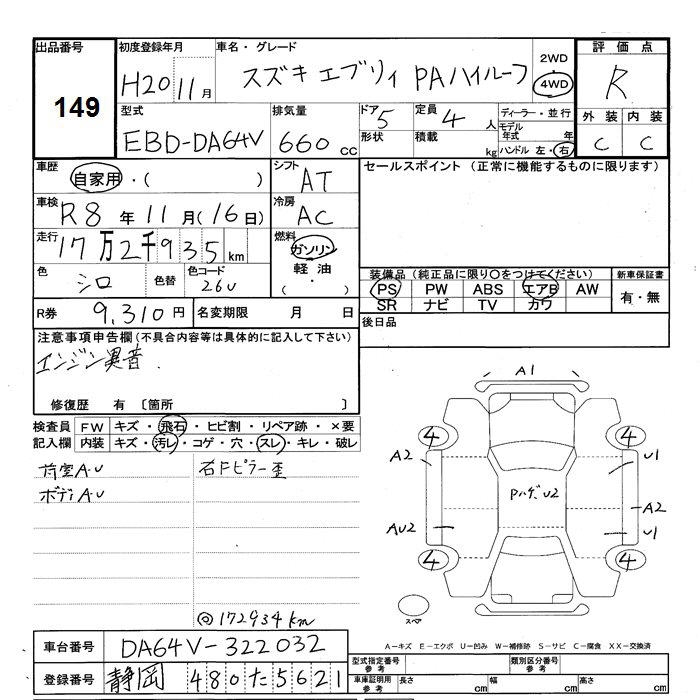 出品番号 初度登録年月 車名・グレード 評価点
149 H20 11月 スズキ エブリィ PAハイルーフ 2WD 4WD R
型式 排気量 ドア 定員 ディーラー・並行 外装 内装
EBD-DA64V 660cc 5 4人 モデル年式 年 C C
形状 積載 kg ハンドル 左・右
車歴 自家用・( ) シフト AT セールスポイント (正常に機能するものに限ります)
車検 R8年11月(16日) 冷房 AC
走行 17万2千935km 燃料 ガソリン 軽油 (・)
色 シロ 色替 色コード 26U
装備品 (純正品に限り〇をつけてください) 新車保証書
PS PW ABS エアB AW 有・無
SR ナビ TV カワ
R券 9,310円 名変期限 月 日 後日品
注意事項申告欄(不具合内容等は具体的に記入して下さい)
エンジン異音
修復歴 有 〔箇所 〕
検査員 FW キズ・飛石・ヒビ割・リペア跡・×要
記入欄 内装 キズ・汚レ・コゲ・穴・スレ・キレ・破レ
荷室A・U 右Fピラー歪
ボディA・U
A1
4 4
A2 U1
Pハゲ U2
A2
AU2 U1
4 4
スペア
@172934km
A－キズ E－エクボ U－凹み W－補修跡 S－サビ C－腐食 XX－交換済
車台番号 DA64V-322032 型式指定番号 参考 類別区分番号 参考
登録番号 静岡 480 た 5621 車庫証明用 参考 長さ cm 幅 cm 高さ cm